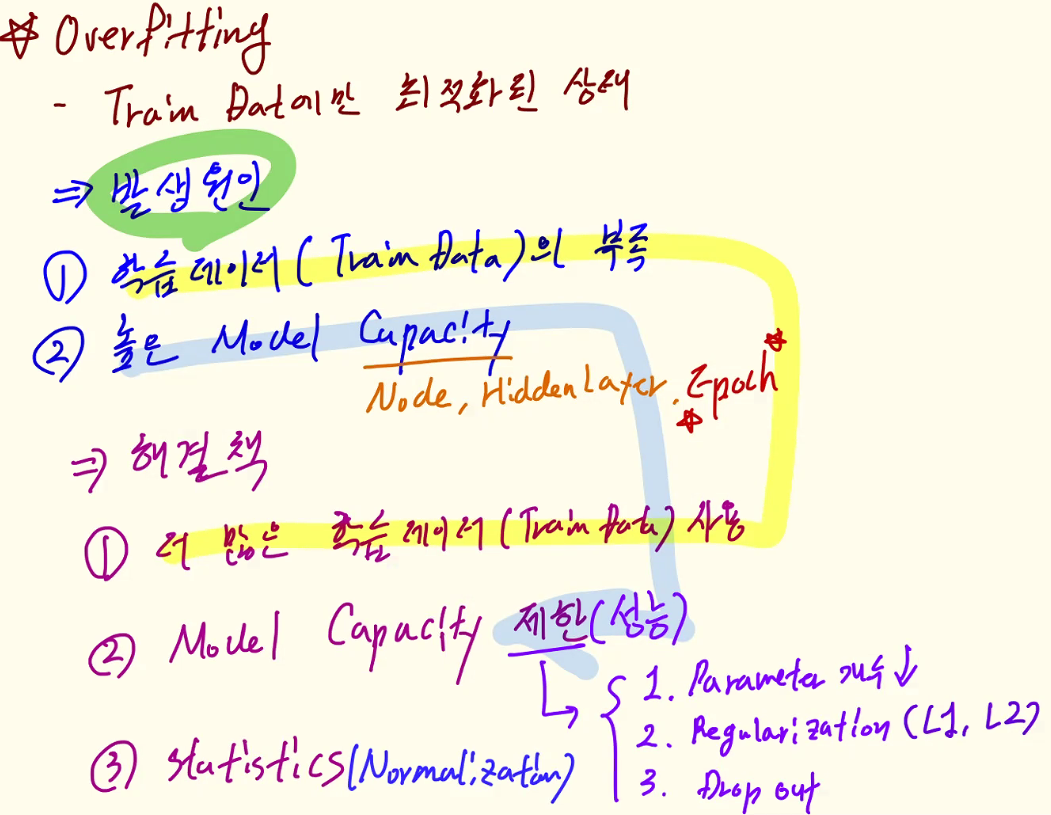 ☆ Overfitting
- Train Data에만 최적화된 상태
⇒ 발생원인
① 학습데이터(Train Data)의 부족
② 높은 Model Capacity
Node, Hidden Layer, Epoch
⇒ 해결책
① 더 많은 학습데이터(Train Data) 사용
② Model Capacity 제한(성능)
1. Parameter 개수↓
2. Regularization (L1, L2)
3. Drop out
③ Statistics(Normalization)